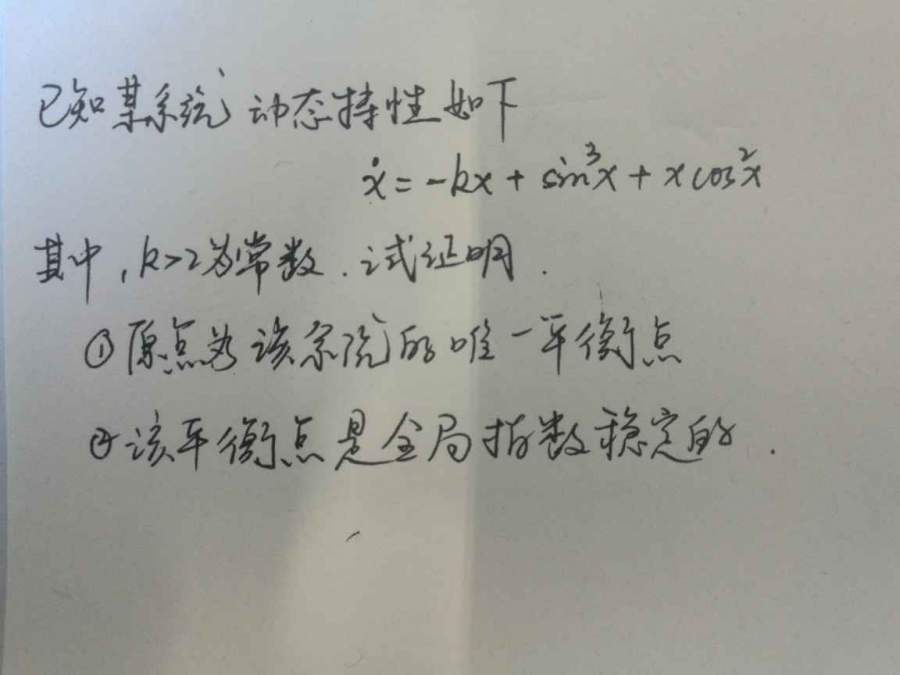 已知某系统动态特性如下
ẋ = -kx + sin³x + xcos²x
其中,k>2为常数.试证明.
①原点为该系统的唯一平衡点
②该平衡点是全局指数稳定的.